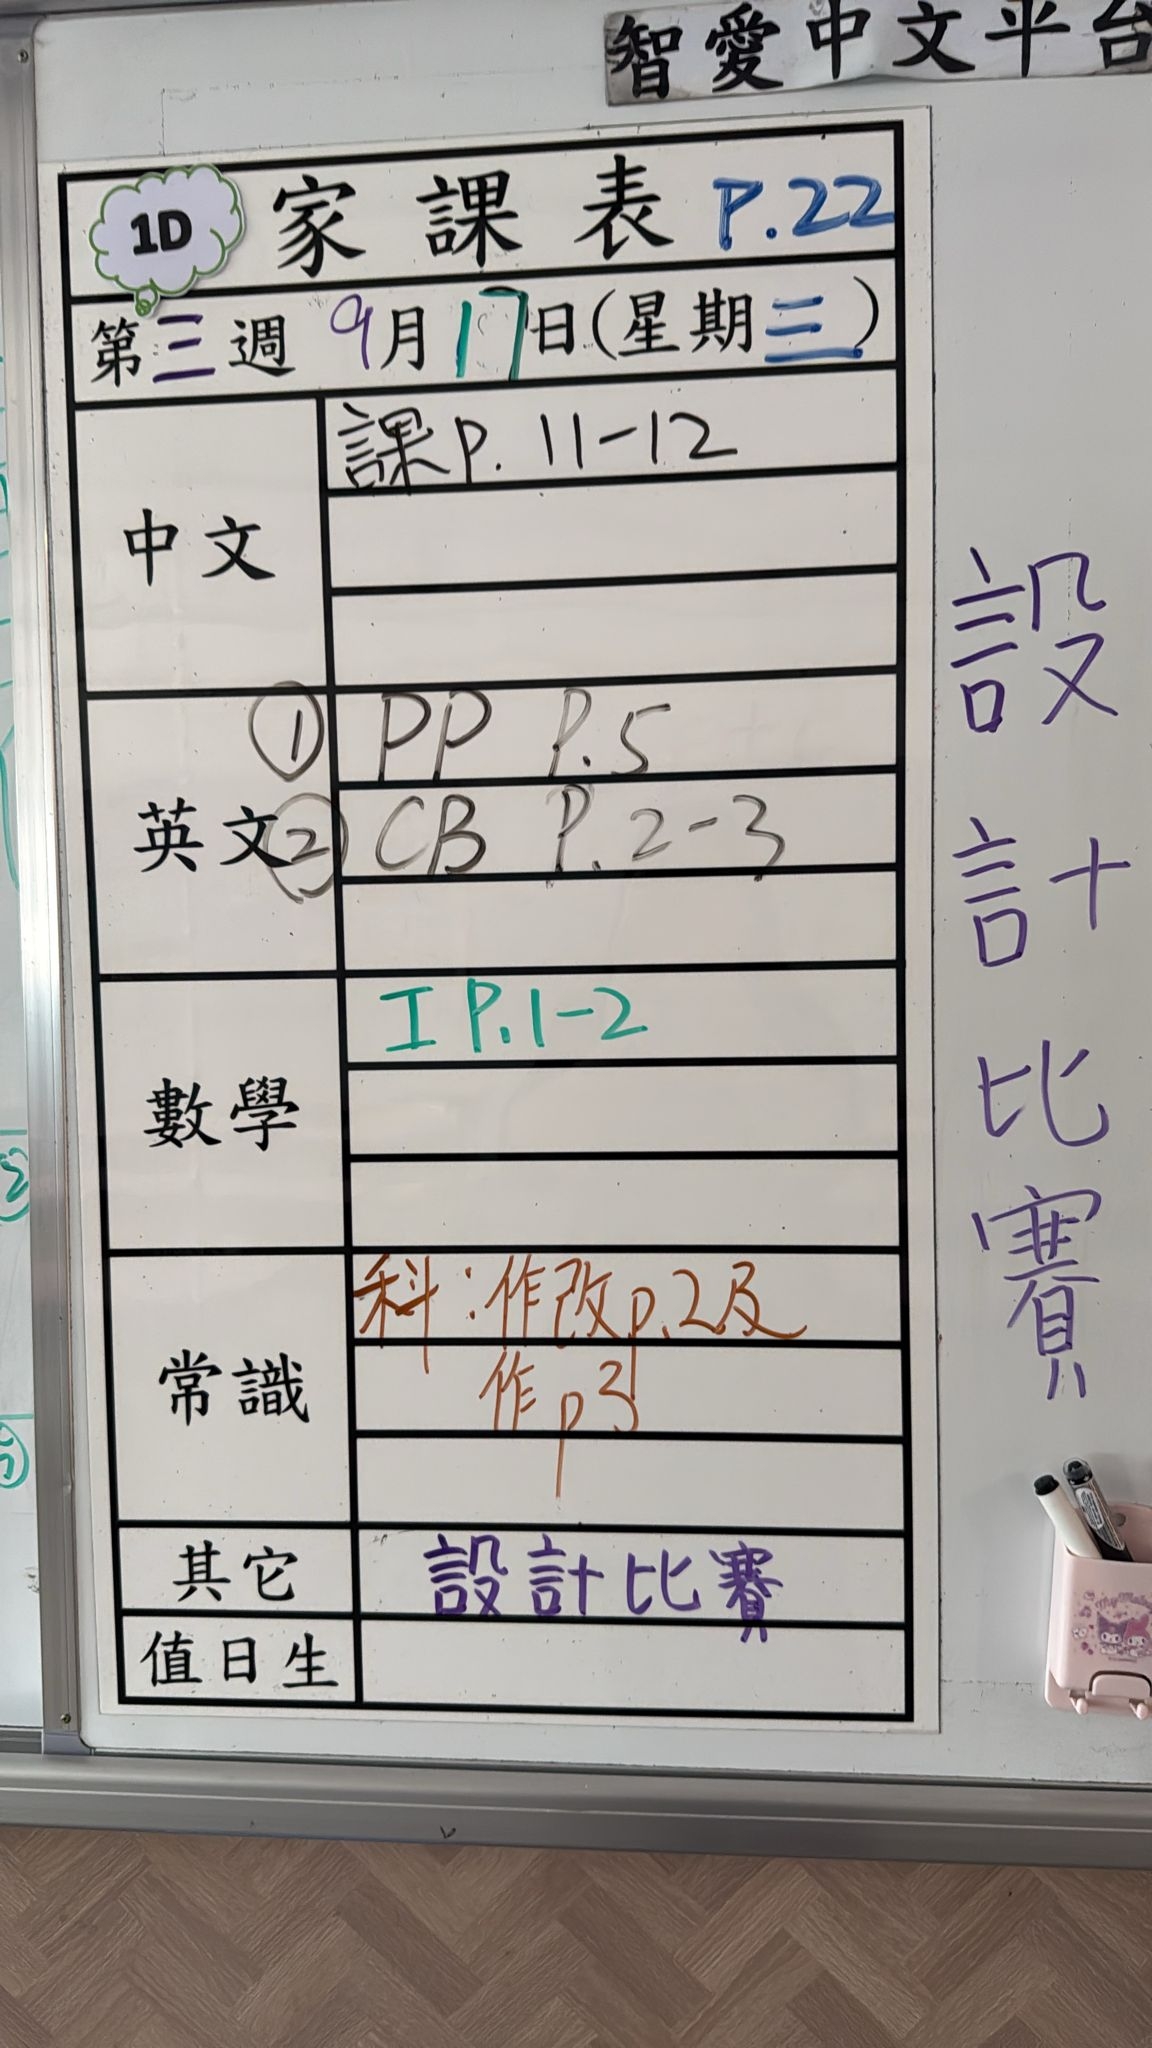 智愛中文平台
1D 家課表 P.22
第三週 9月17日(星期三)
中文
課P. 11-12
英文
① PP P.5
② CB P.2-3
數學
I P.1-2
常識
科:作改p.2及
作p3
其它
設計比賽
值日生
設計比賽
②